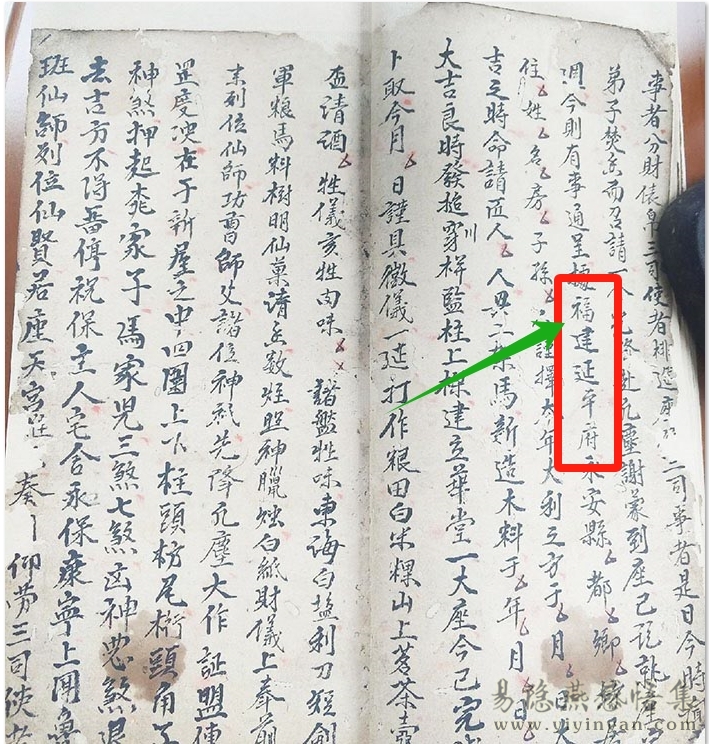 事者分財俵帛三司使者排造 二司事者是日今時
弟子焚香而召請一 降赴凡塵謝蒙到座已訖
凋今則有事通呈據福建延平府永安縣 都 鄉
住 姓 名 房 子孫 謹擇 年大利之方于 月 日大
吉之時命請匠人 馬新造木料于 年 月 日
大吉良時發搥穿枅監柱上樑建立華堂一大座今已完
卜取今月 日謹具微儀一筵打作粮田白米粿山上茗茶
壺請酒 牲儀亥牲肉味 諸盤牲味東海白盐利刀短劍
軍粮馬料樹明仙菓清香数炷照神臘燭白紙財儀上奉
未列位仙師功曹師父諸位神祇先降凡塵大作証盟
在于新屋之中四圍上下柱頭枋尾桁頭角子
神煞押起 家子馮家児三煞七煞凶神悪煞退
去吉方不得暫停祝保主人宅舍永保康寧上
班仙師列位仙賢若座天宮 奏 仰劳三司使者
易隐燕缘悟集
www.yiyinyan.com